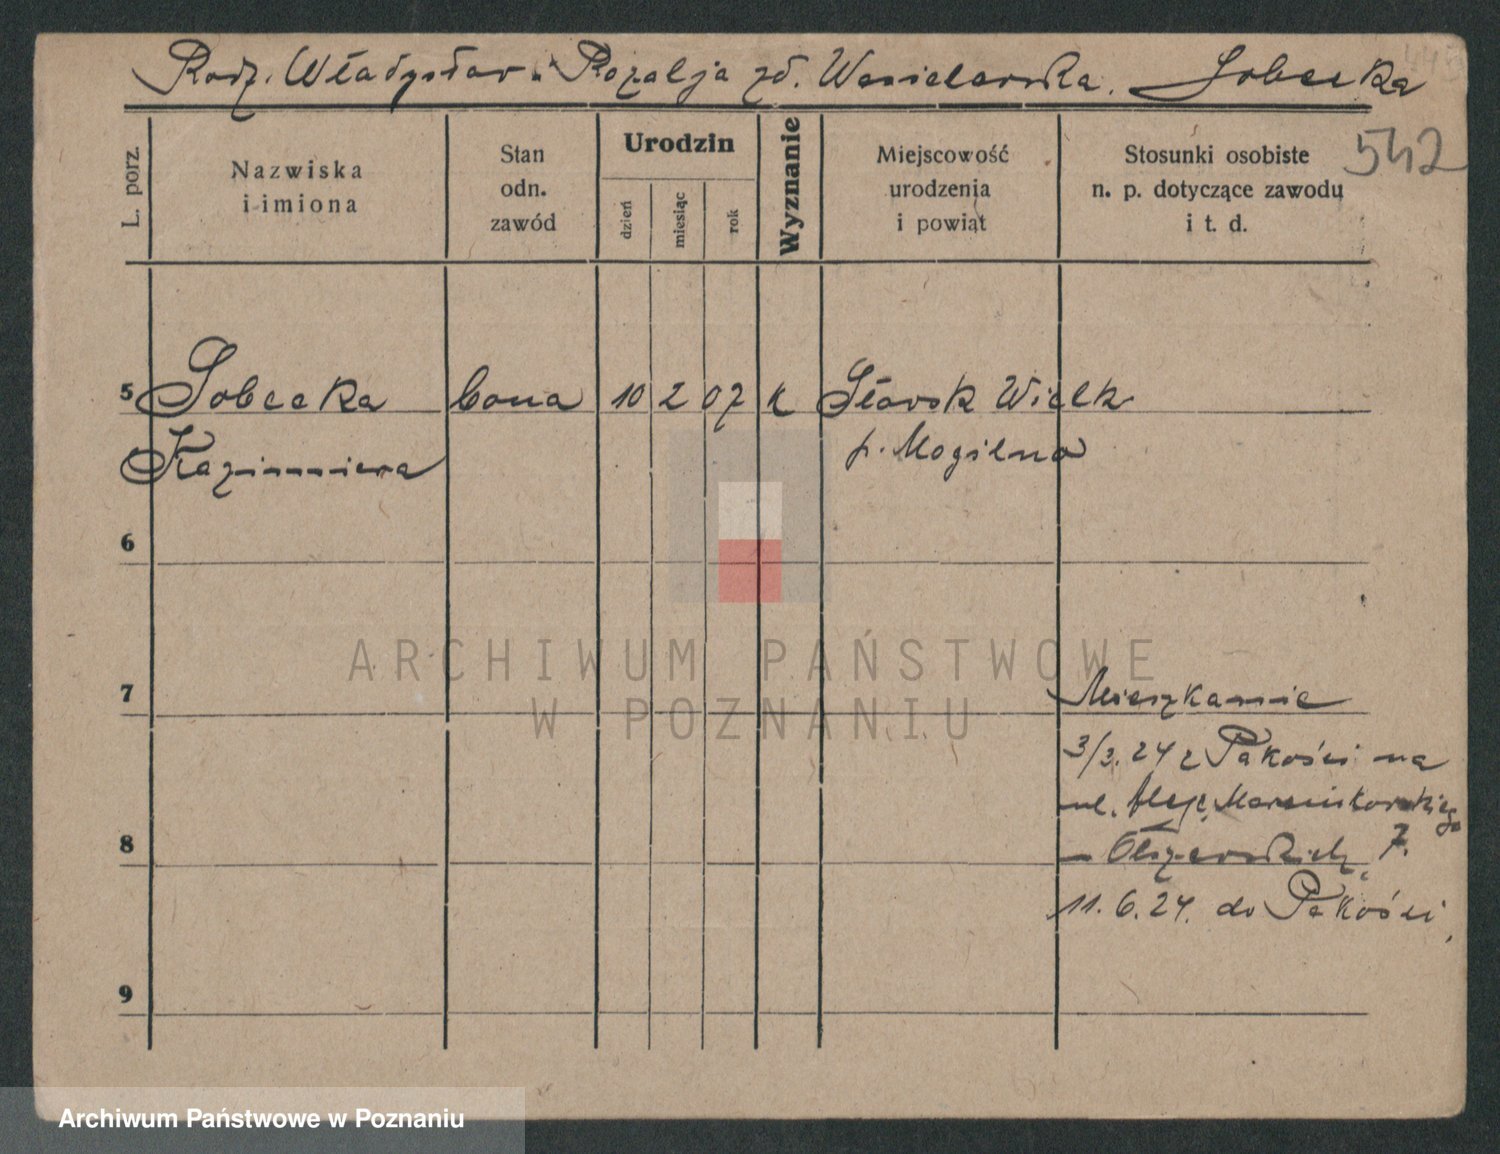 Rodz. Władysław i Rozalja zd. Wasielewska. Sobecka
542
L. porz.
Nazwiska
i imiona
Stan
odn.
zawód
Urodzin
dzień
miesiąc
rok
Wyznanie
Miejscowość
urodzenia
i powiat
Stosunki osobiste
n. p. dotyczące zawodu
i t. d.
5 Sobecka bona 10 2 07 k Sławsk Wielk
Kazimiera p. Mogilno
6
ARCHIWUM PAŃSTWOWE
W POZNANIU
7 Mieszkanie
3/3. 24 z Pakości na
ul. Marcinkowskiego
8 7.
11. 6. 24. do Pakości
9
Archiwum Państwowe w Poznaniu